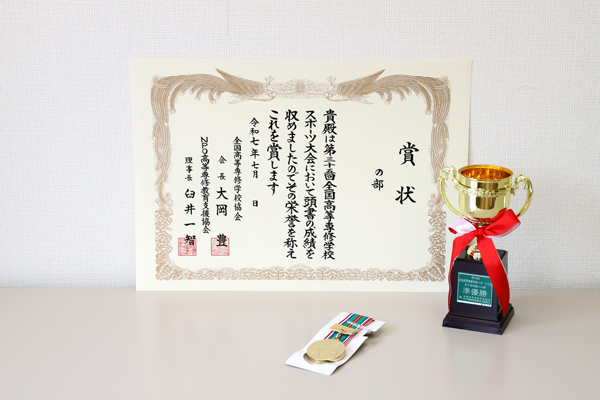 賞状
の部
貴殿は第三十回全国高等専修学校
スポーツ大会において頭書の成績を
収めましたのでその栄誉を称え
これを賞します
令和七年七月　日
全国高等専修学校協会
会長 大岡 豊
NPO高等専修教育支援協会
理事長 臼井一智
準優勝